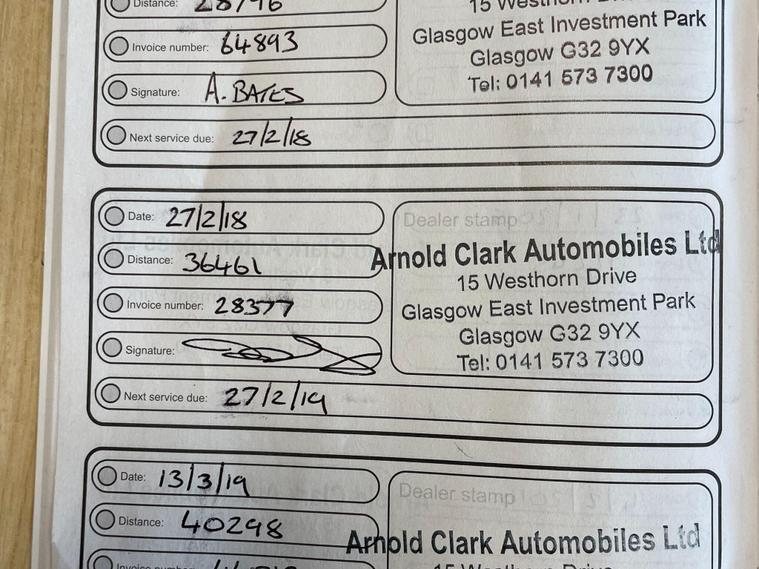 Distance: 28796
Invoice number: 64893
Signature: A. BATES
Next service due: 27/2/18
15 Westhorn
Glasgow East Investment Park
Glasgow G32 9YX
Tel: 0141 573 7300
Date: 27/2/18
Distance: 36461
Invoice number: 28377
Signature:
Next service due: 27/2/19
Dealer stamp
Arnold Clark Automobiles Ltd
15 Westhorn Drive
Glasgow East Investment Park
Glasgow G32 9YX
Tel: 0141 573 7300
Date: 13/3/19
Distance: 40298
Invoice number:
Dealer stamp
Arnold Clark Automobiles Ltd